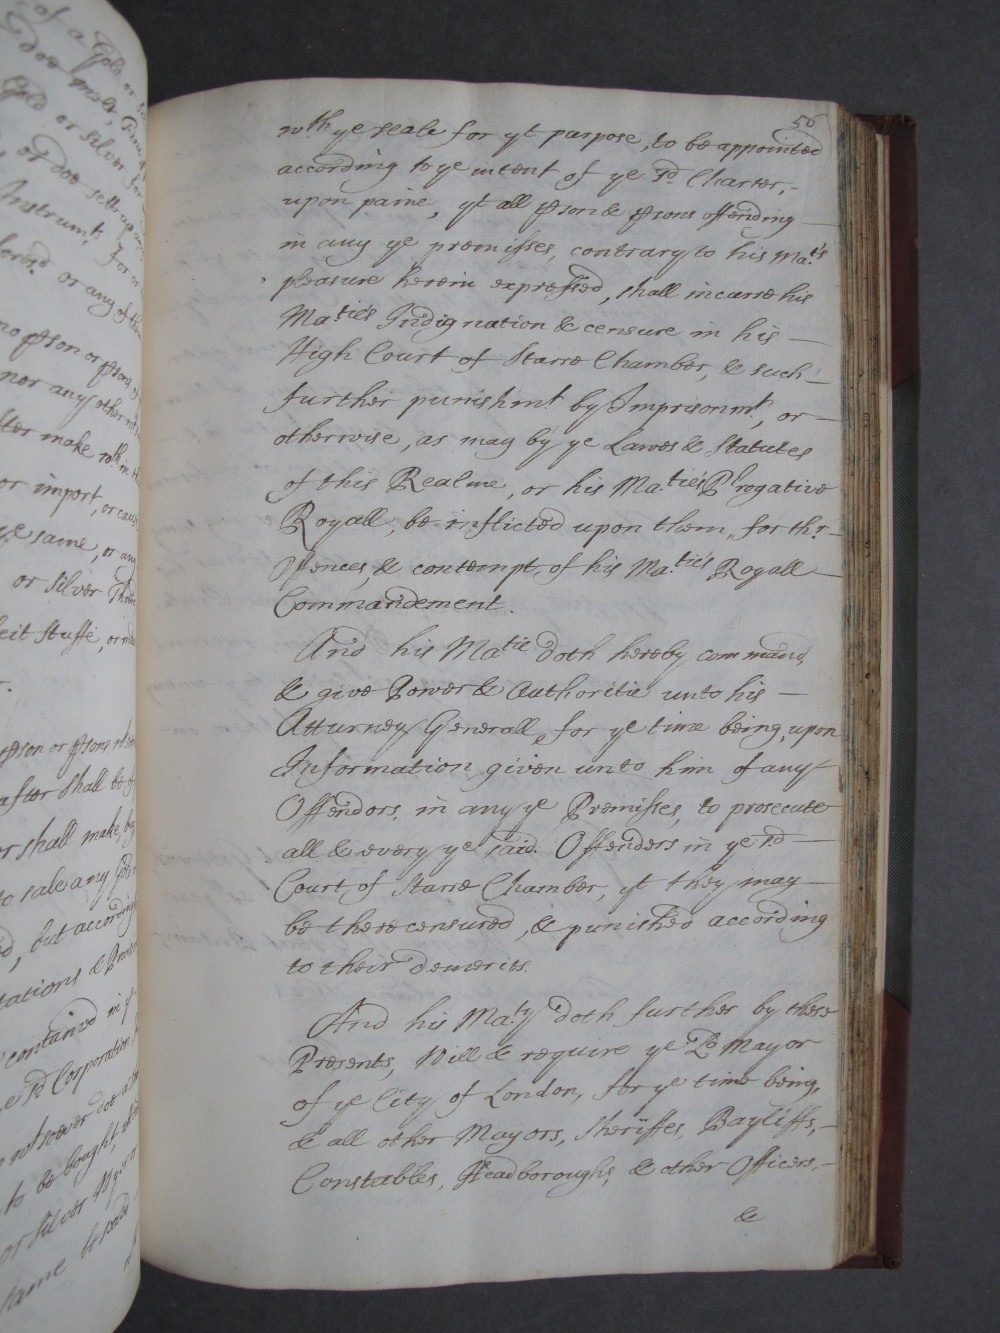 of a Gold or
Gold or Silver
or doe sell
Instrumts. for
or any of the
no pson or psons
nor any other
make wthin
or import, or cause
ye same, or any
or Silver Thre
Stuffe, or
pson or psons
after shall be
or shall make, buy
to sale any Gold
but according
tations &
contained in ye
ye sd Corporation
wtsoever doe
to be bought,
or Silver Wyer
same
56
wth ye seale for yt purpose, to be appointed
according to ye intent of ye sd Charter,-
upon paine, yt all pson & psons offending —
in any ye premisses, contrary to his Ma.ties
pleasure herein expressed, shall incurre his
Ma.ties Indignation & censure in his —
High Court of Starre Chamber, & such —
further punishmt. by Imprisonmt., or —
otherwise, as may by ye Lawes & Statutes
of this Realme, or his Ma.ties Prrogative
Royall, be inflicted upon them, for thr. —
Offences, & contempt, of his Ma.ties Royall —
Commandement.
And his Ma.tie doth hereby command,
& give Power & Authoritie unto his —
Atturney Generall, for ye time being, upon
Information given unto him of any
Offendors, in any ye Premisses, to prosecute
all & every ye said Offenders in ye sd —
Court of Starre Chamber, yt they may —
be there censured, & punished according
to their demerits.
And his Ma.ty doth further by these
Presents, Will & require ye Ld Mayor
of ye City of London, for ye time being,
& all other Mayors, Sheriffes, Bayliffs, -
Constables, Headboroughs, & other Officers, -
&